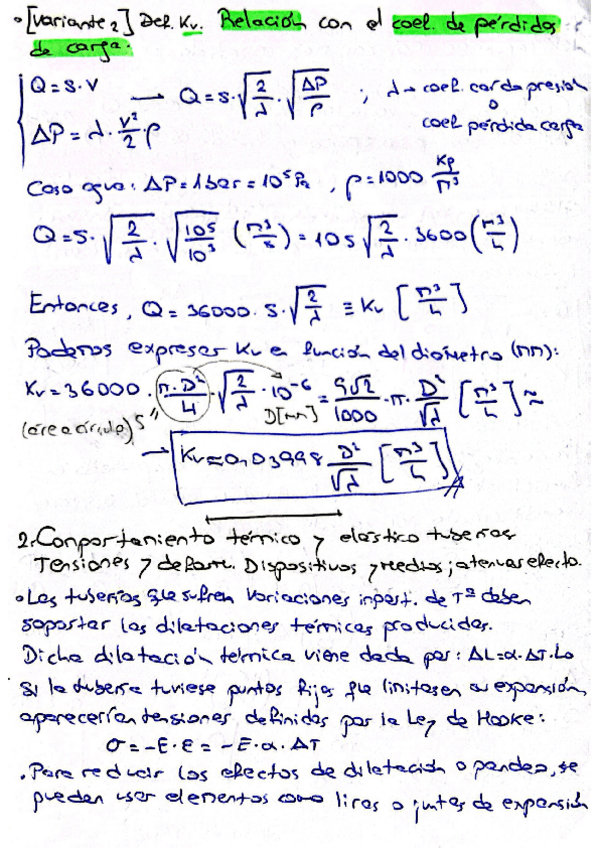 • [Variante 2] Def. Kv. Relación con el coef. de pérdidas
de carga.
Q = S·V → Q = S·√(2/λ)·√(ΔP/ρ) ; λ → coef. caída presión
o
ΔP = λ·(v²/2)ρ coef pérdida carga
Caso agua: ΔP = 1bar = 10⁵ Pa, ρ = 1000 Kp/m³
Q = S·√(2/λ)·√(10⁵/10³) (m³/s) = 10S√(2/λ)·3600 (m³/h)
Entonces, Q = 36000·S·√(2/λ) ≡ Kv [m³/h]
Podemos expresar Kv en función del diámetro (mm):
Kv = 36000·(π·D²/4)·√(2/λ)·10⁻⁶ = (9√2/1000)·π·D²/√λ [m³/h] ≈
(área círculo) S" D[mm]
→ Kv ≈ 0,03998 D²/√λ [m³/h]
2. Comportamiento térmico y elástico tuberías
Tensiones y deform. Dispositivos y medios j atenuar efecto.
• Las tuberías que sufren variaciones import. de Tª deben
soportar las dilataciones térmicas producidas.
Dicha dilatación térmica viene dada por: ΔL = α·ΔT·Lo
Si la tubería tuviese puntos fijos que limitasen su expansión,
aparecerían tensiones definidas por la Ley de Hooke:
σ = -E·ε = -E·α·ΔT
• Para reducir los efectos de dilatación o pandeo, se
pueden usar elementos como liras o juntas de expansión